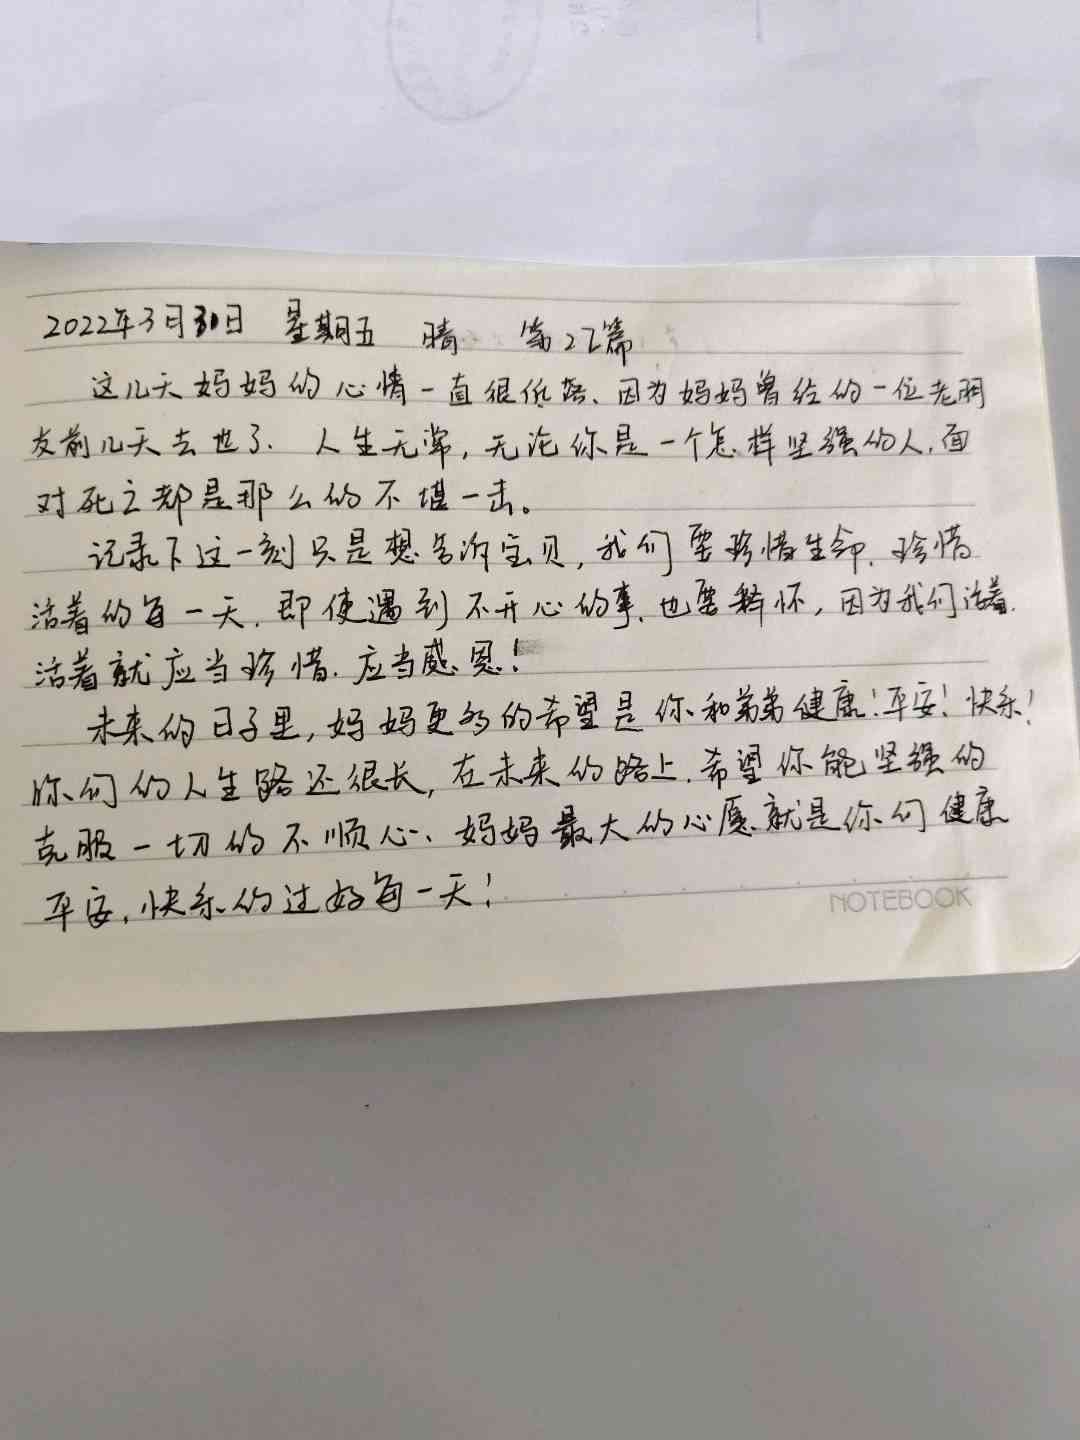 2022年3月31日 星期五 晴 第27篇
这几天妈妈的心情一直很低落、因为妈妈曾经的一位老朋
友前几天去世了. 人生无常, 无论你是一个怎样坚强的人, 面
对死亡都是那么的不堪一击。
记录下这一刻只是想告诉宝贝, 我们要珍惜生命. 珍惜
活着的每一天. 即使遇到不开心的事, 也要释怀, 因为我们活着.
活着就应当珍惜. 应当感恩!
未来的日子里, 妈妈更多的希望是你和弟弟健康! 平安! 快乐!
你们的人生路还很长, 在未来的路上. 希望你能坚强的
克服一切的不顺心、妈妈最大的心愿就是你们健康
平安, 快乐的过好每一天!
NOTEBOOK